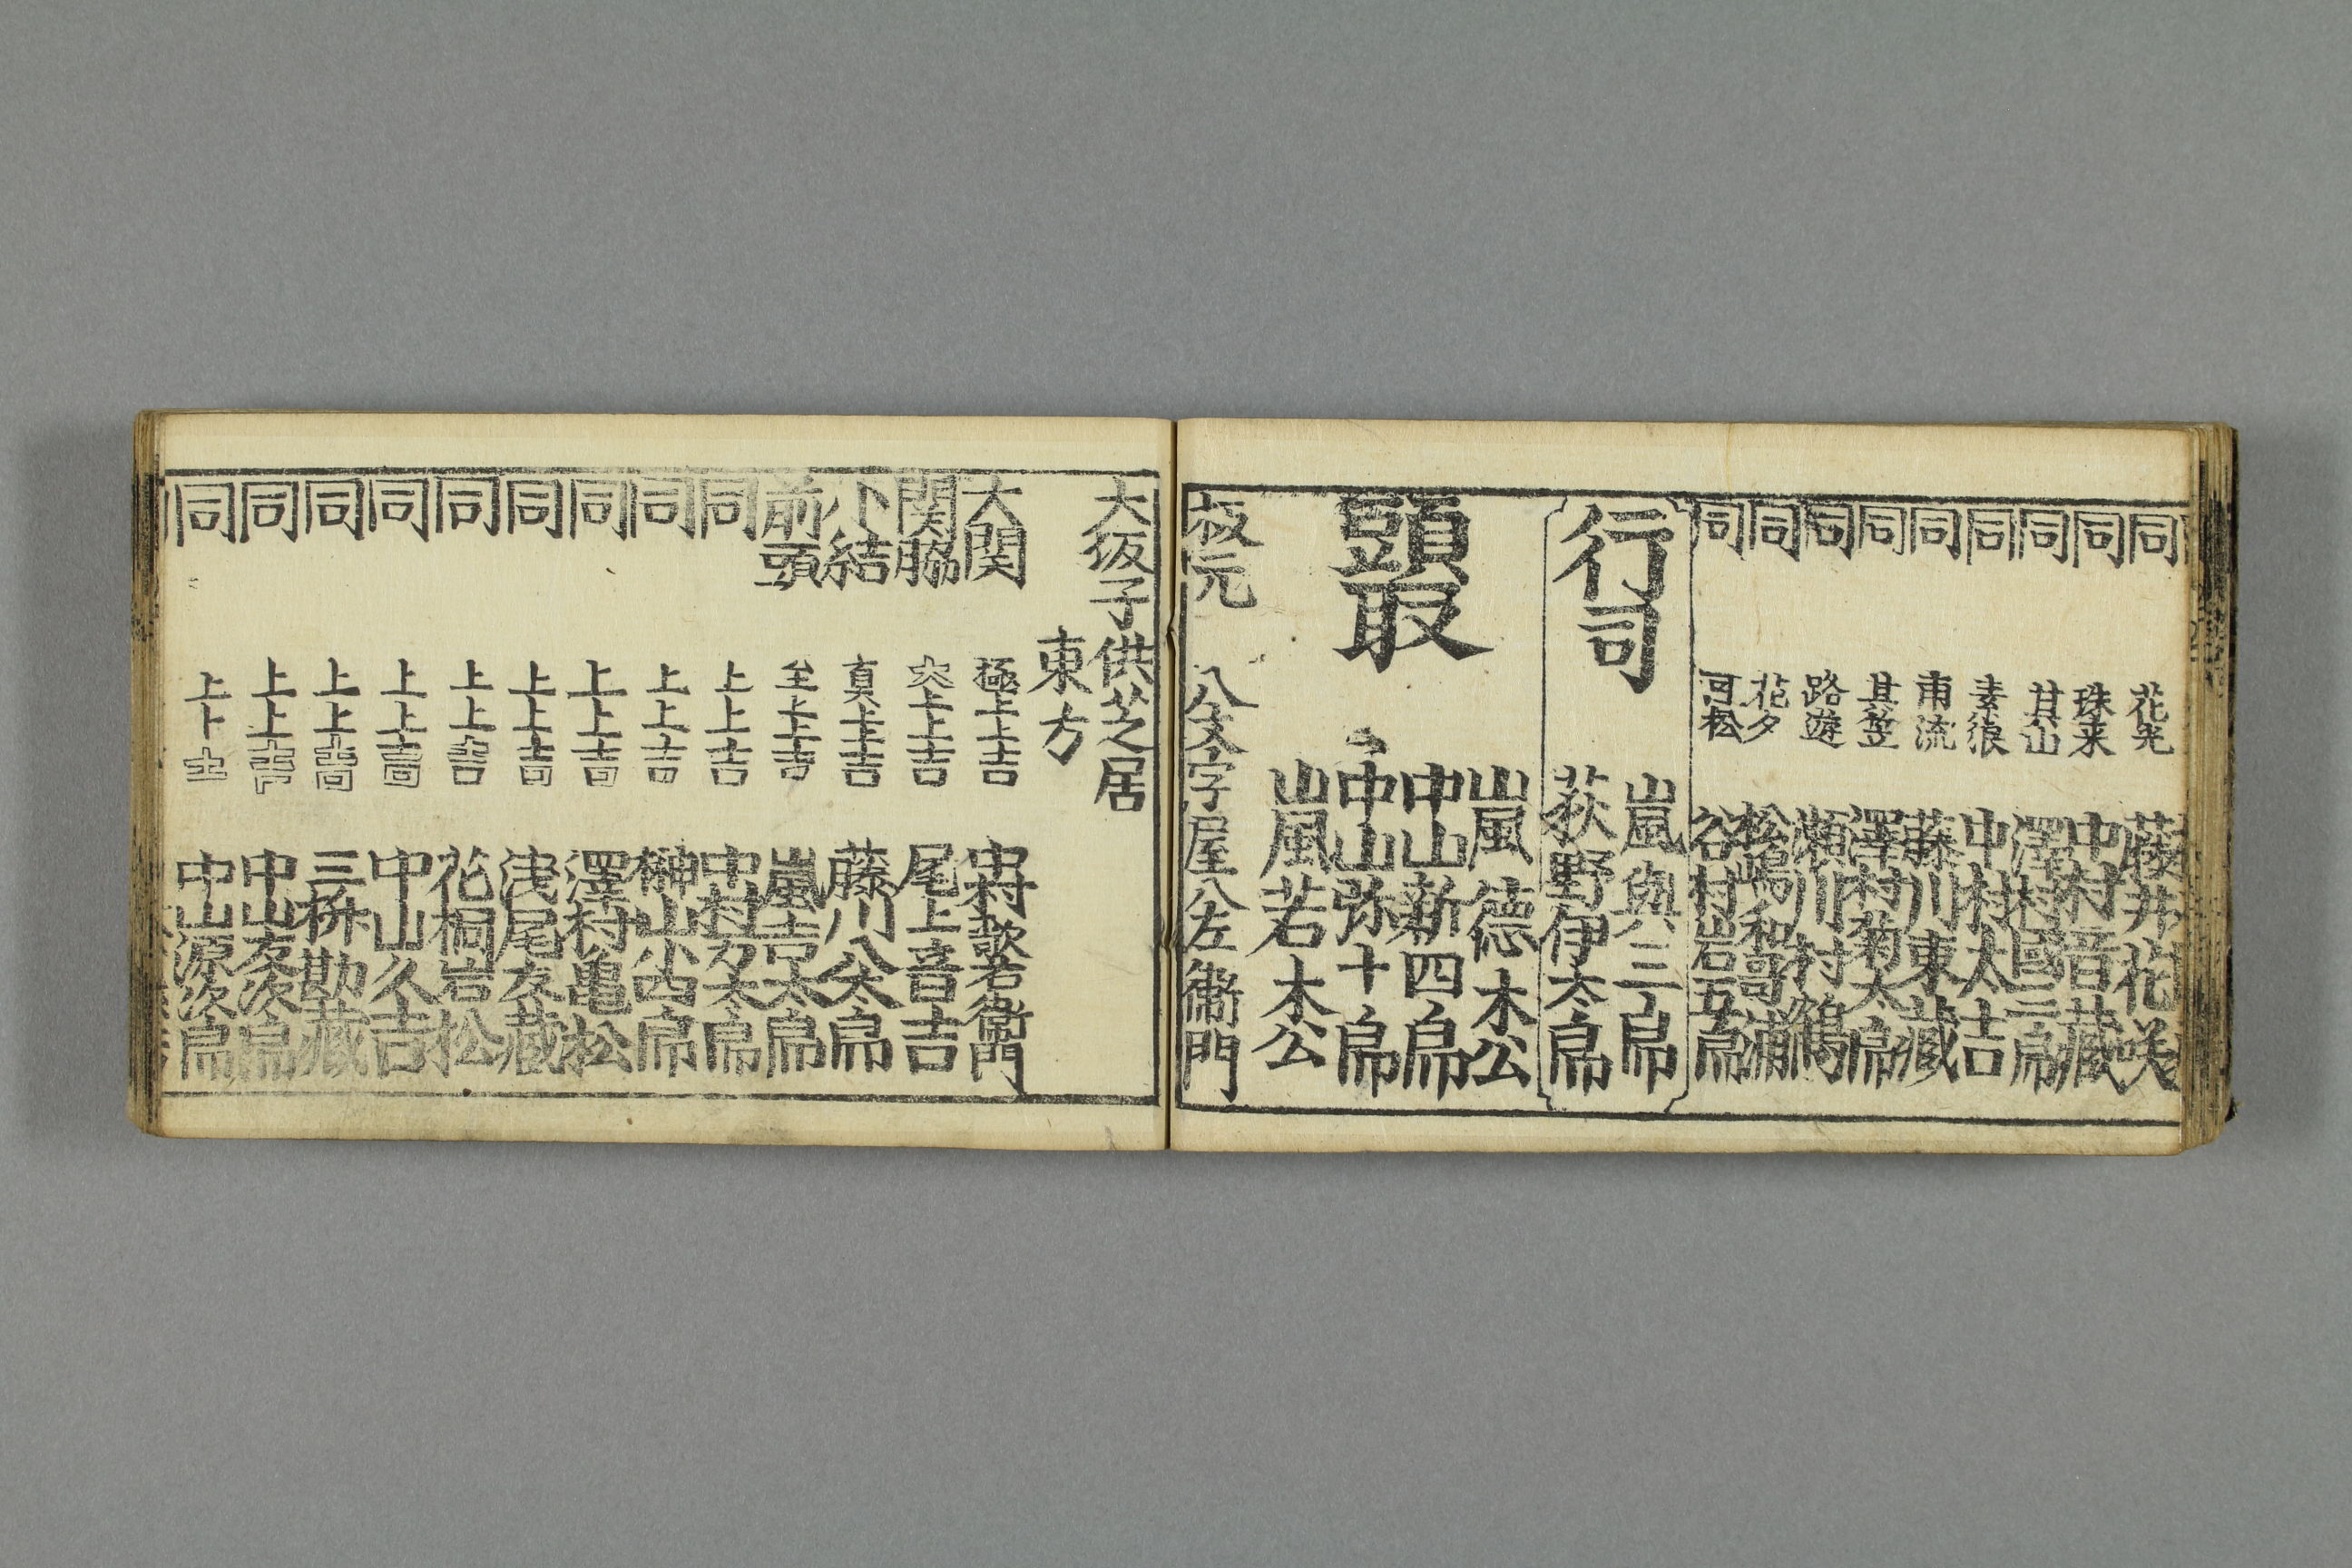 同 花兊 藤井花咲
同 珠来 中村音藏
同 其山 澤村國三郎
同 素狼 中村太吉
同 甫流 藤川東藏
同 其笠 澤村菊太郎
同 路遊 瀬川村鶴
同 花夕 松嶋和哥浦
同 可松 谷村岩五郎
行司 嵐與三郎
荻野伊太郎
頭取 嵐德木公
中山新四郎
中山弥十郎
嵐若木公
板元 八文字屋八左衞門
大坂子供芝居
東方
大関 極上上吉 中村歌右衞門
関脇 大上上吉 尾上音吉
小結 真上上吉 藤川八太郎
前頭 至上上吉 嵐吉太郎
同 上上吉 中村万太郎
同 上上吉 榊山小四郎
同 上上吉 澤村亀松
同 上上吉 浅尾友藏
同 上上吉 花桐岩松
同 上上吉 中山久吉
同 上上吉 三桝勘藏
同 上上吉 中山友次郎
同 上上士 中山源次郎